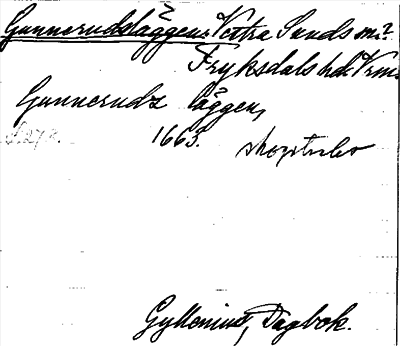 Gunnerudsläggen. Västra Sunds m?
Fryksdals hd. Vrm.
Gunneruds läggen,
1663. skogstrakt
S. 278.
Gyllenius, Dagbok.